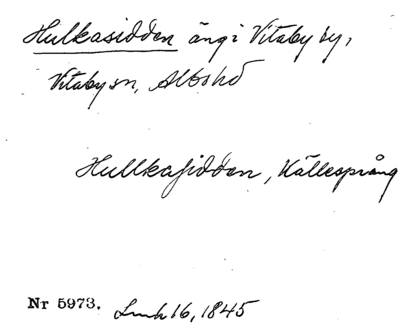 Hulkasidden äng i Vitaby by,
Vitaby sn, Albo hd
Hullkasidden, Källesprång
Nr 5973. 16, 1845